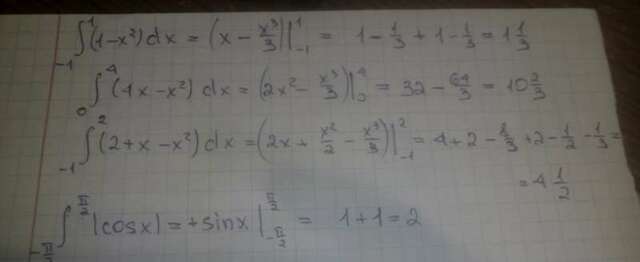 ∫₋₁¹ (1-x²) dx = (x - x³/3)|₋₁¹ = 1 - 1/3 + 1 - 1/3 = 1 1/3
∫₀⁴ (4x-x²) dx = (2x² - x³/3)|₀⁴ = 32 - 64/3 = 10 2/3
∫₋₁² (2+x-x²) dx = (2x + x²/2 - x³/3)|₋₁² = 4 + 2 - 8/3 + 2 - 1/2 - 1/3 =
= 4 1/2
∫₋π/2^π/2 |cosx| = + sinx |₋π/2^π/2 = 1 + 1 = 2